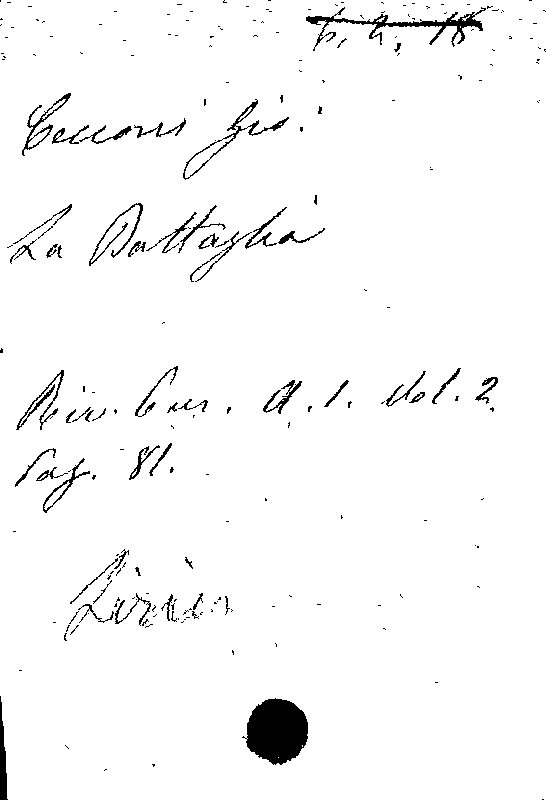 6. 2. 18
Cecconi Gio:
La Battaglia
Riv. Eur. A. 1. Vol. 2
Pag. 81.